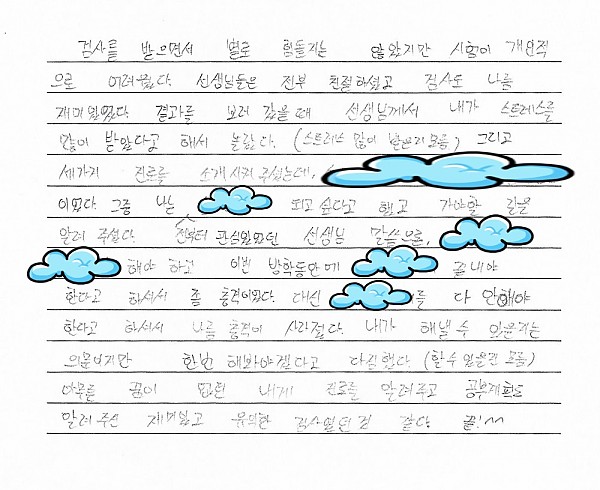 검사를 받으면서 별로 힘들지는 않았지만 시험이 개인적
으로 어려웠다. 선생님들은 전부 친절하셨고 검사도 나름
재미있었다. 결과를 보러 갔을 때 선생님께서 내가 스트레스를
많이 받았다고 해서 놀랐다. (스트레스 많이 받은지 모름) 그리고
세가지 진로를 소개시켜 주셨는데,
이었다. 그중 나는 되고 싶다고 했고 가야할 길을
알려 주셨다. 전부터 관심있었던 선생님 말씀으로,
해야 하고 이번 방학동안에 끝내야
한다고 하셔서 좀 충격이었다. 대신 를 다 안해야
한다고 하셔서 나름 충격이 사라졌다. 내가 해낼 수 있을지는
의문이지만 한번 해봐야겠다고 다짐했다. (할수 있을런 모름)
아무튼 꿈이 없던 내게 진로를 알려주고 공부계획도
알려 주신 재미있고 유익한 검사였던 것 같다. 끝!